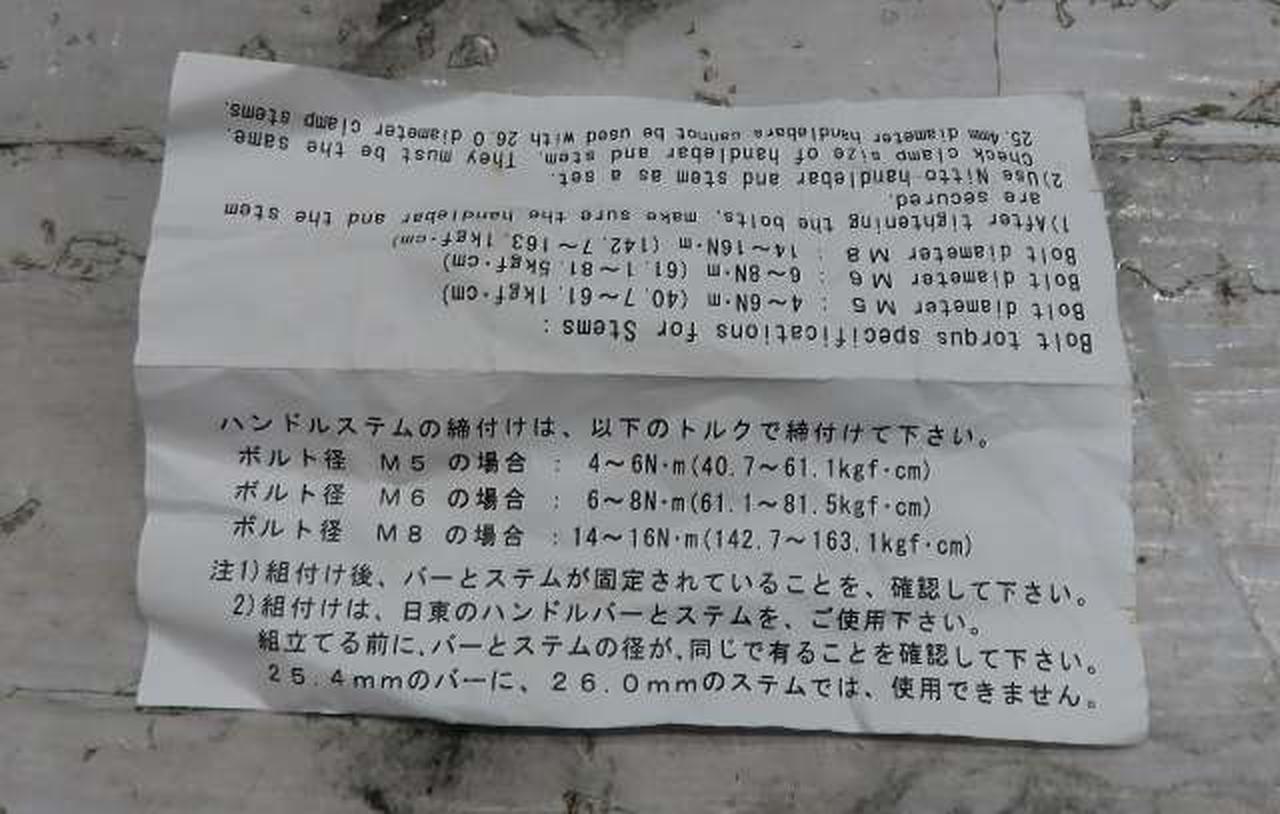 Bolt torqus specifications for Stems :
Bolt diameter M5 : 4〜6N·m (40.7〜61.1kgf·cm)
Bolt diameter M6 : 6〜8N·m (61.1〜81.5kgf·cm)
Bolt diameter M8 : 14〜16N·m (142.7〜163.1kgf·cm)
1)After tightening the bolts, make sure the handlebar and the stem
are secured.
2)Use Nitto handlebar and stem as a set.
Check clamp size of handlebar and stem. They must be the same.
25.4mm diameter handlebars cannot be used with 26.0 diameter clamp stems.
ハンドルステムの締付けは、以下のトルクで締付けて下さい。
ボルト径 M5 の場合 : 4〜6N·m(40.7〜61.1kgf·cm)
ボルト径 M6 の場合 : 6〜8N·m(61.1〜81.5kgf·cm)
ボルト径 M8 の場合 : 14〜16N·m(142.7〜163.1kgf·cm)
注1)組付け後、バーとステムが固定されていることを、確認して下さい。
2)組付けは、日東のハンドルバーとステムを、ご使用下さい。
組立てる前に、バーとステムの径が、同じで有ることを確認して下さい。
25.4mmのバーに、26.0mmのステムでは、使用できません。